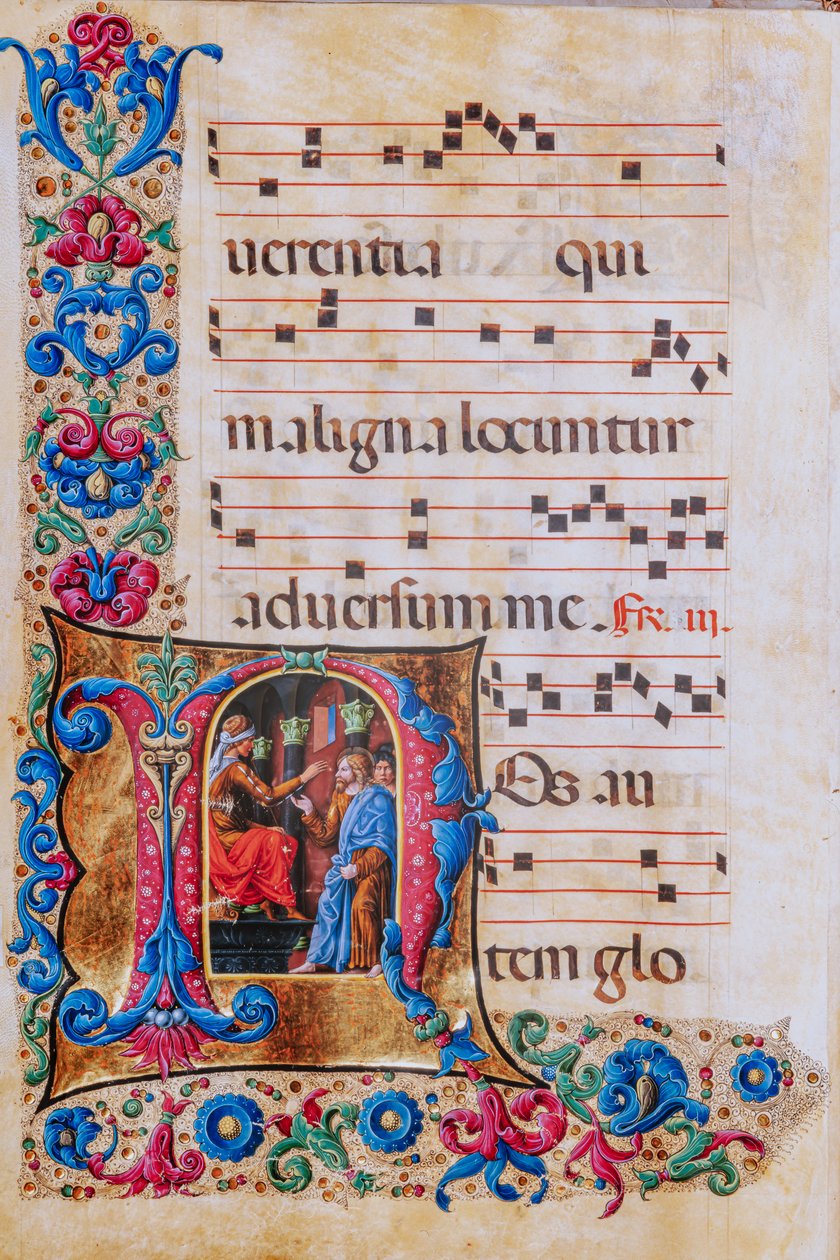 uerentia qui
maligna locuntur
aduersum me. Fr. iii.
NOs au
tem glo